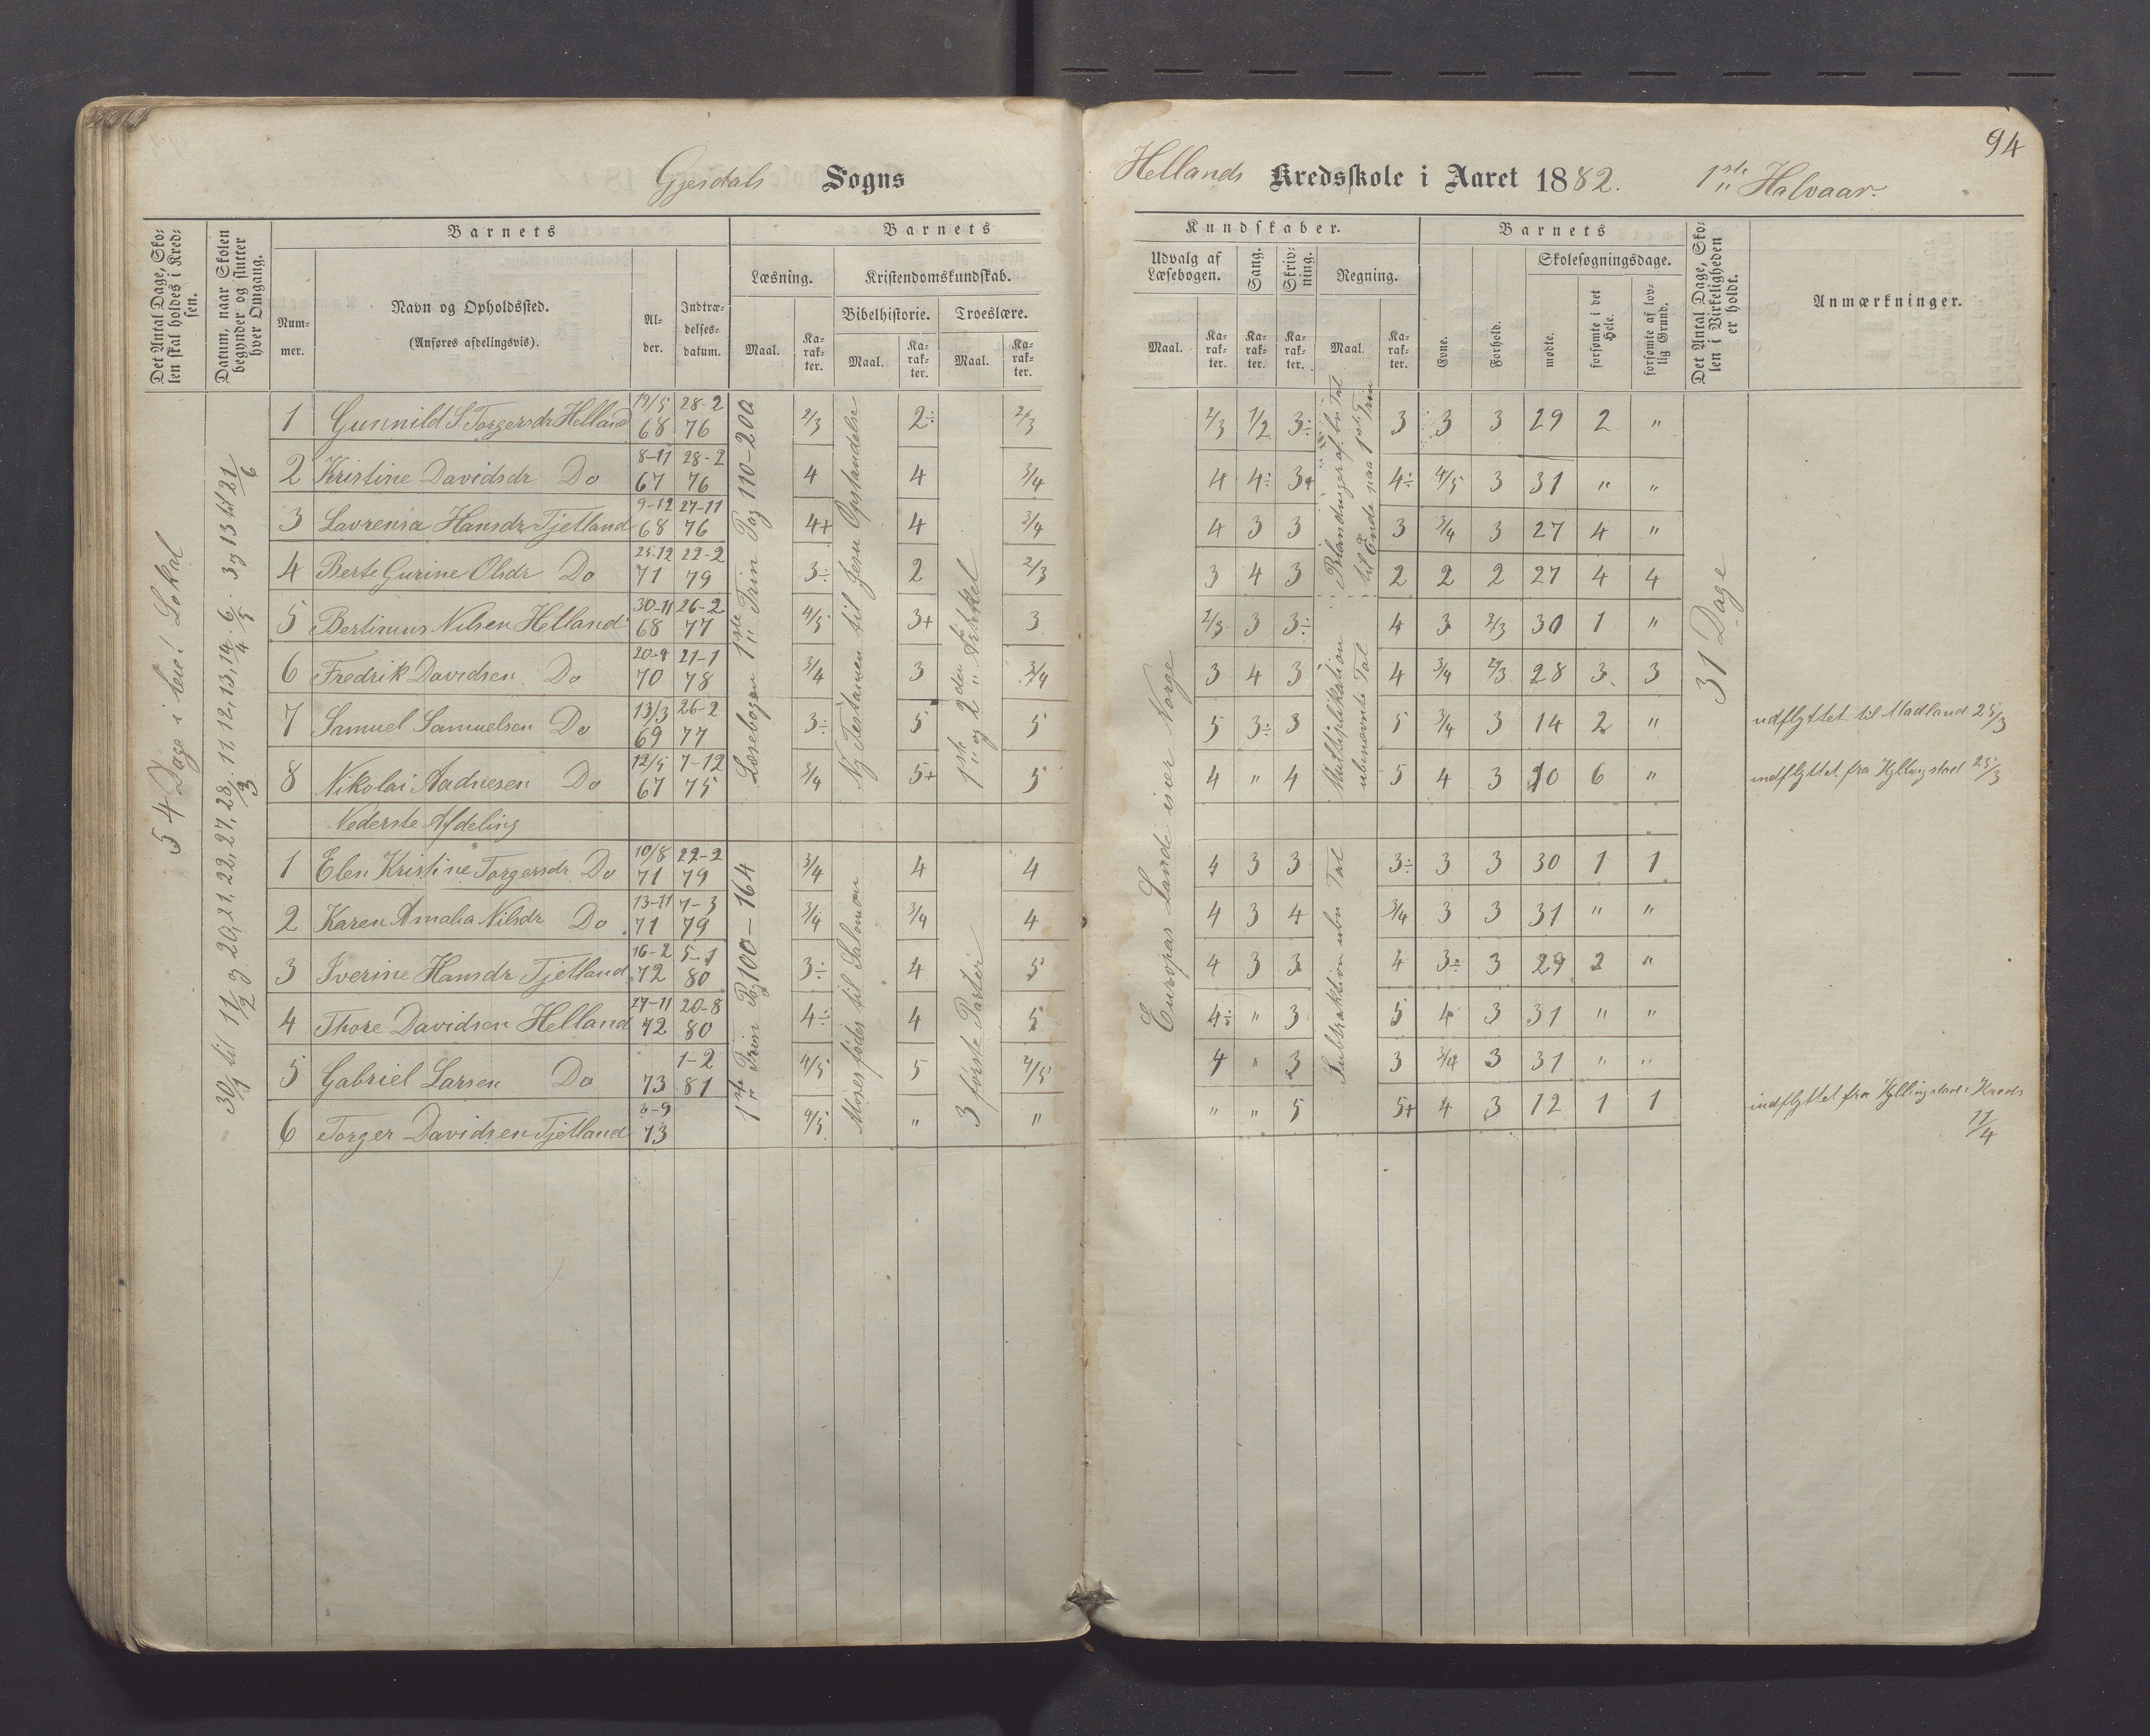 94
Gjesdals Sogns
Hellands Kredsskole i Aaret 1882. 1ste Halvaar.
Det Antal Dage, Skolen skal holdes i Kredsen.
Datum, naar Skolen begynder og slutter hver Omgang.
Barnets
Nummer.
Navn og Opholdssted.
(Anføres afdelingsvis).
Alder.
Indtrædelsesdatum.
Barnets
Læsning.
Maal.
Karakter.
Kristendomskundskab.
Bibelhistorie.
Maal.
Karakter.
Troeslære.
Maal.
Karakter.
Kundskaber.
Udvalg af Læsebogen.
Maal.
Karakter.
Sang.
Karakter.
Skrivning.
Karakter.
Regning.
Maal.
Karakter.
Barnets
Evne.
Forhold.
Skolesøgningsdage.
mødte.
forsømte i det Hele.
forsømte af lovlig Grund.
Det Antal Dage, Skolen i Virkeligheden er holdt.
Anmærkninger.
54 Dage i leiet Lokal
30/1 til 11/2 og 20, 21, 22, 27, 28/3. 11, 12, 13, 14/4. 6/5. 3 og 13 til 21/6
Læsebogen 1ste Trin Pag 110-200
Ny Testamen til Jesu Opstandelse
1ste og 2den Artikel
Europas Lande især Norge
Multiplikation ubenævnte Tal
til Ende paa 1ste Trin
31 Dage
1 Gunnild S Torgersdr Helland 19/5 68 28-2 76 2/3 2÷ 2/3 2/3 1/2 3÷ 3 3 3 29 2 "
2 Kristine Davidsdr Do 8-11 67 28-2 76 4 4 3/4 4 4÷ 3+ 4÷ 4/5 3 31 " "
3 Lavrensa Hansdr Tjetland 9-12 68 27-11 76 4+ 4 3/4 4 3 3 3 3/4 3 27 4 "
4 Berte Gurine Olsdr Do 25-12 71 22-2 79 3÷ 2 2/3 3 4 3 2 2 2 27 4 4
5 Bertinus Nilsen Helland 30-11 68 26-2 77 4/5 3+ 3 2/3 3 3÷ 4 3 2/3 30 1 "
6 Fredrik Davidsen Do 20-9 70 21-1 78 3/4 3 3/4 3 4 3 4 3/4 2/3 28 3 3
7 Samuel Samuelsen Do 13/3 69 26-2 77 3÷ 5 5 5 3÷ 3 5 3/4 3 14 2 " udflyttet til Madland 25/3
8 Nikolai Aadnesen Do 12/5 67 7-12 75 3/4 5+ 5 4 " 4 5 4 3 10 6 " indflyttet fra Kyllingstad 25/3
Nederste Afdeling
1ste Trin Pag 100-164
Moses fødes til Salomon
3 første Parter
Subtraktion ubn Tal
1 Elen Kristine Torgersdr Do 10/8 71 22-2 79 3/4 4 4 4 3 3 3÷ 3 3 30 1 1
2 Karen Amalia Nilsdr Do 13-11 71 7-3 79 3/4 3/4 4 4 3 4 3/4 3 3 31 " "
3 Iverine Hansdr Tjetland 16-2 72 5-1 80 3÷ 4 5 4 3 3 4 3÷ 3 29 2 "
4 Thore Davidsen Helland 27-11 72 20-8 80 4÷ 4 5 4÷ " 3 5 4 3 31 " "
5 Gabriel Larsen Do 73 1-2 81 4/5 5 4/5 4 " 3 3 3/4 3 31 " "
6 Torger Davidsen Tjetland 73 4/5 " " " " 5 5+ 4 3 12 1 1 indflyttet fra Kyllingstads Kreds 11/4